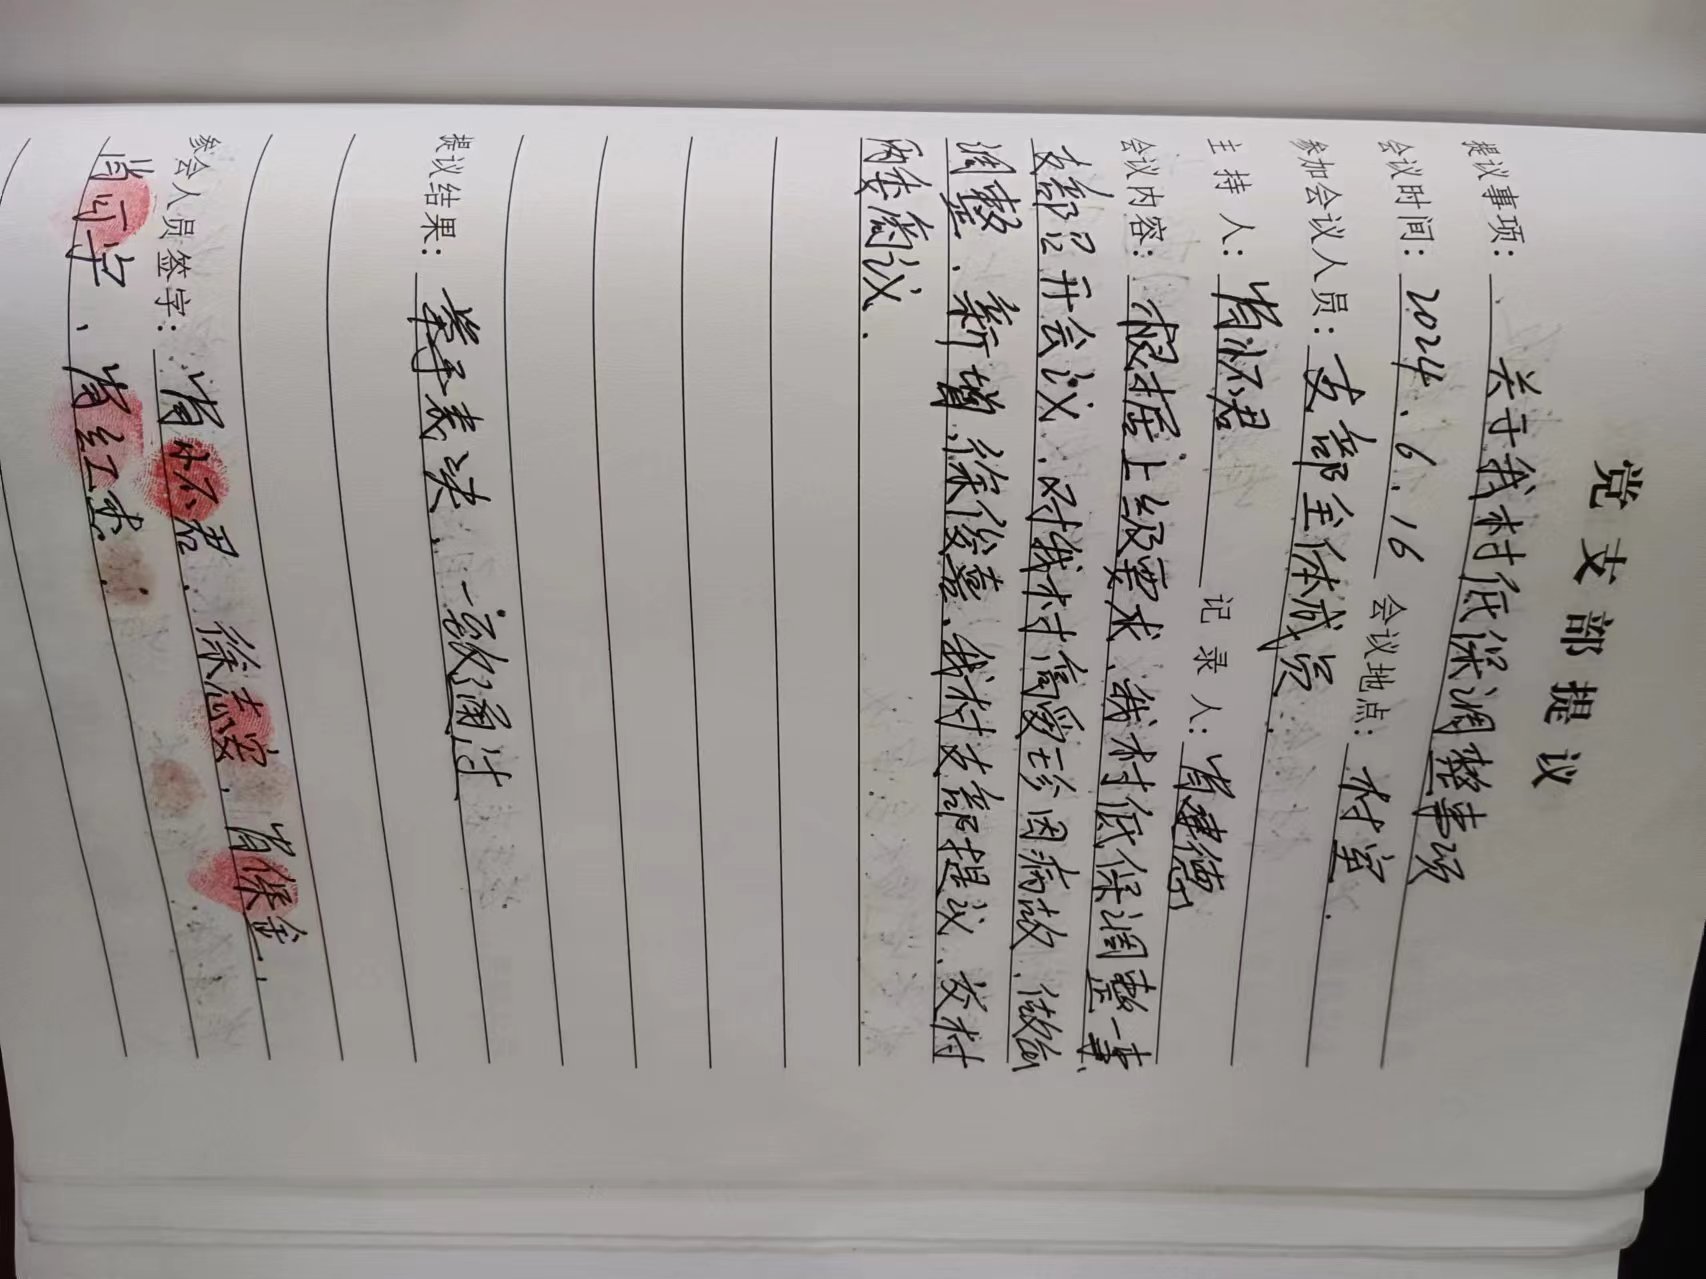 党支部提议
提议事项：关于我村低保调整事项
会议时间：2024.6.16 会议地点：村室.
参加会议人员：支部全体成员.
主持人：肖怀君 记录人：肖建德
会议内容：根据上级要求、我村低保调整一事、
支部召开会议.对我村高爱珍因病故.做出
调整、新增.徐俊喜.我村支部提议.交村
两委商议.
提议结果：举手表决.一致通过
参会人员签字：肖怀君、徐志安、肖保金、
肖同字、肖红杰.